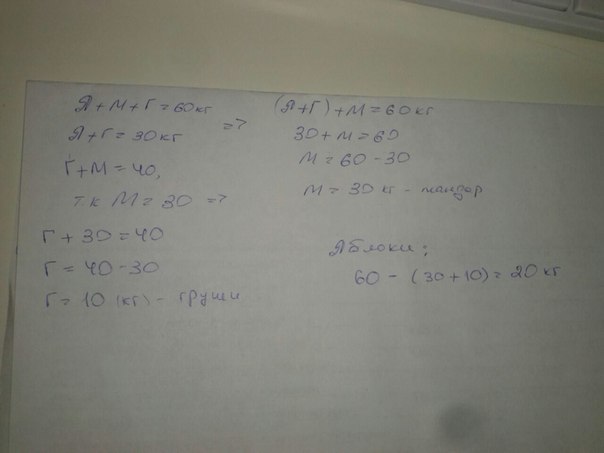 Я + М + Г = 60 кг
Я + Г = 30 кг => 
Г + М = 40,
т.к М = 30 =>
Г + 30 = 40
Г = 40 - 30
Г = 10 (кг) - груши
(Я + Г) + М = 60 кг
30 + М = 60
М = 60 - 30
М = 30 кг - мандар
Яблоки:
60 - (30 + 10) = 20 кг